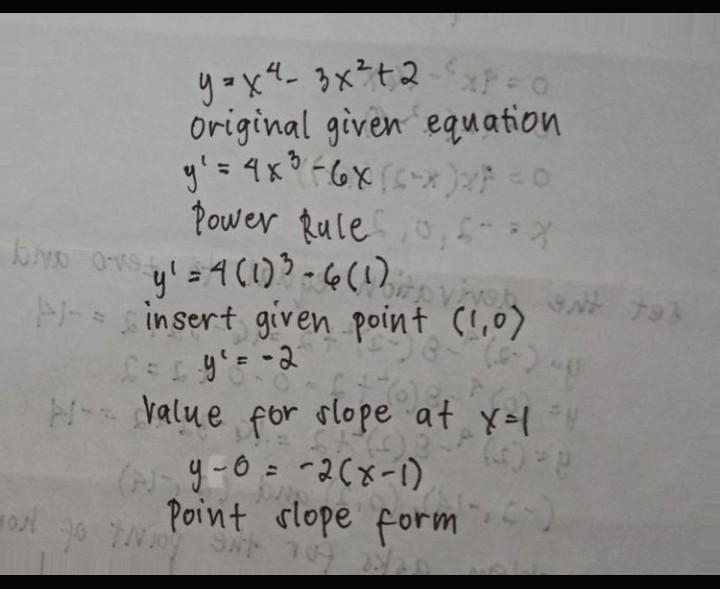 y = x⁴ - 3x² + 2
original given equation
y' = 4x³ - 6x
Power Rule
y' = 4(1)³ - 6(1)
insert given point (1,0)
y' = -2
value for slope at x=1
y - 0 = -2(x-1)
Point slope form